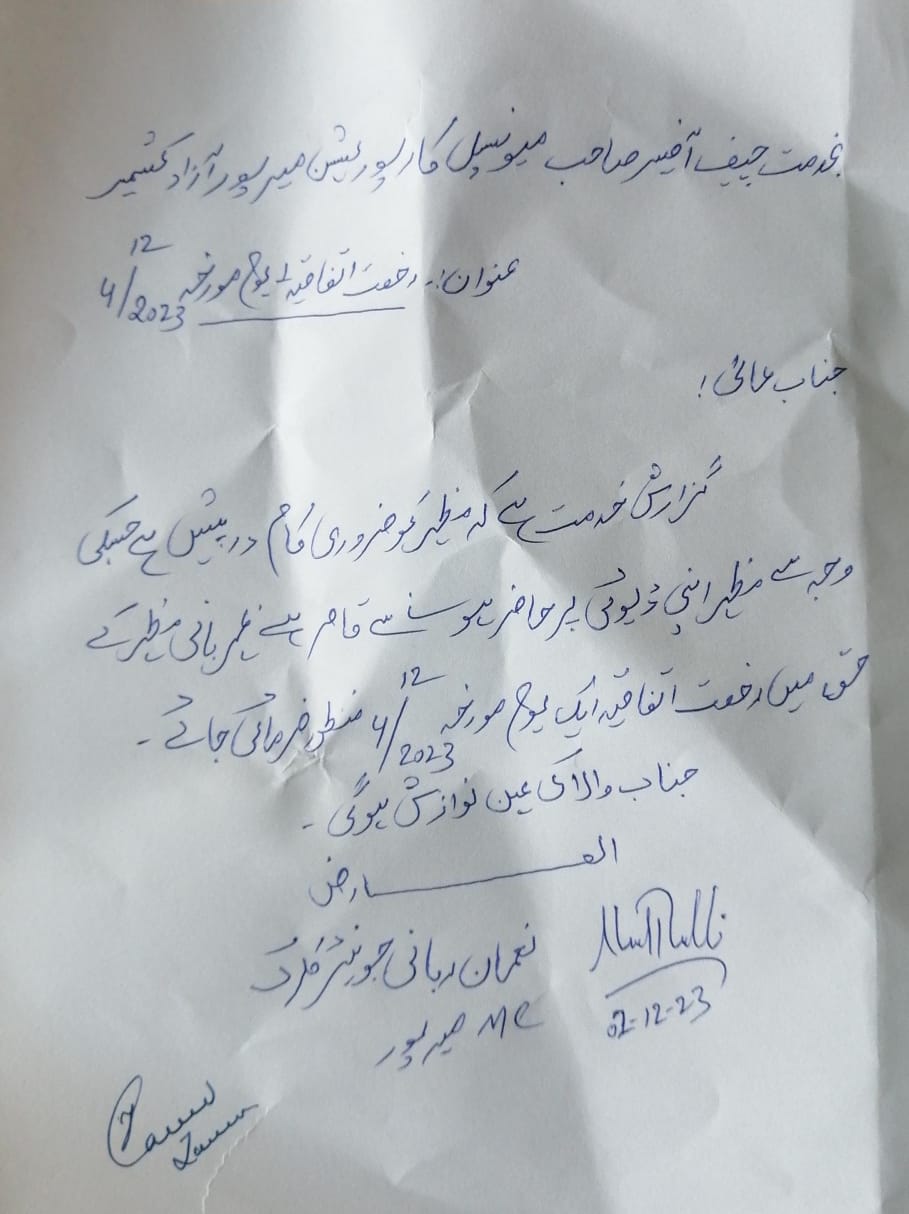 بخدمت چیف آفیسر صاحب میونسپل کارپوریشن میرپور آزاد کشمیر
عنوان:۔ رخصت اتفاقیہ 1 یوم مورخہ 4/12/2023
جناب عالی!
گزارش خدمت ہے کہ مظہر کو ضروری کام درپیش ہے جسکی
وجہ سے مظہر اپنی ڈیوٹی پر حاضر ہونے سے قاصر ہے مہربانی مظہر کے
حق میں رخصت اتفاقیہ ایک یوم مورخہ 4/12/2023 منظور فرمائی جائے۔
جناب والا کی عین نوازش ہوگی۔
العارض
نعمان ربانی جونیئر کلرک
MC میرپور
02-12-23